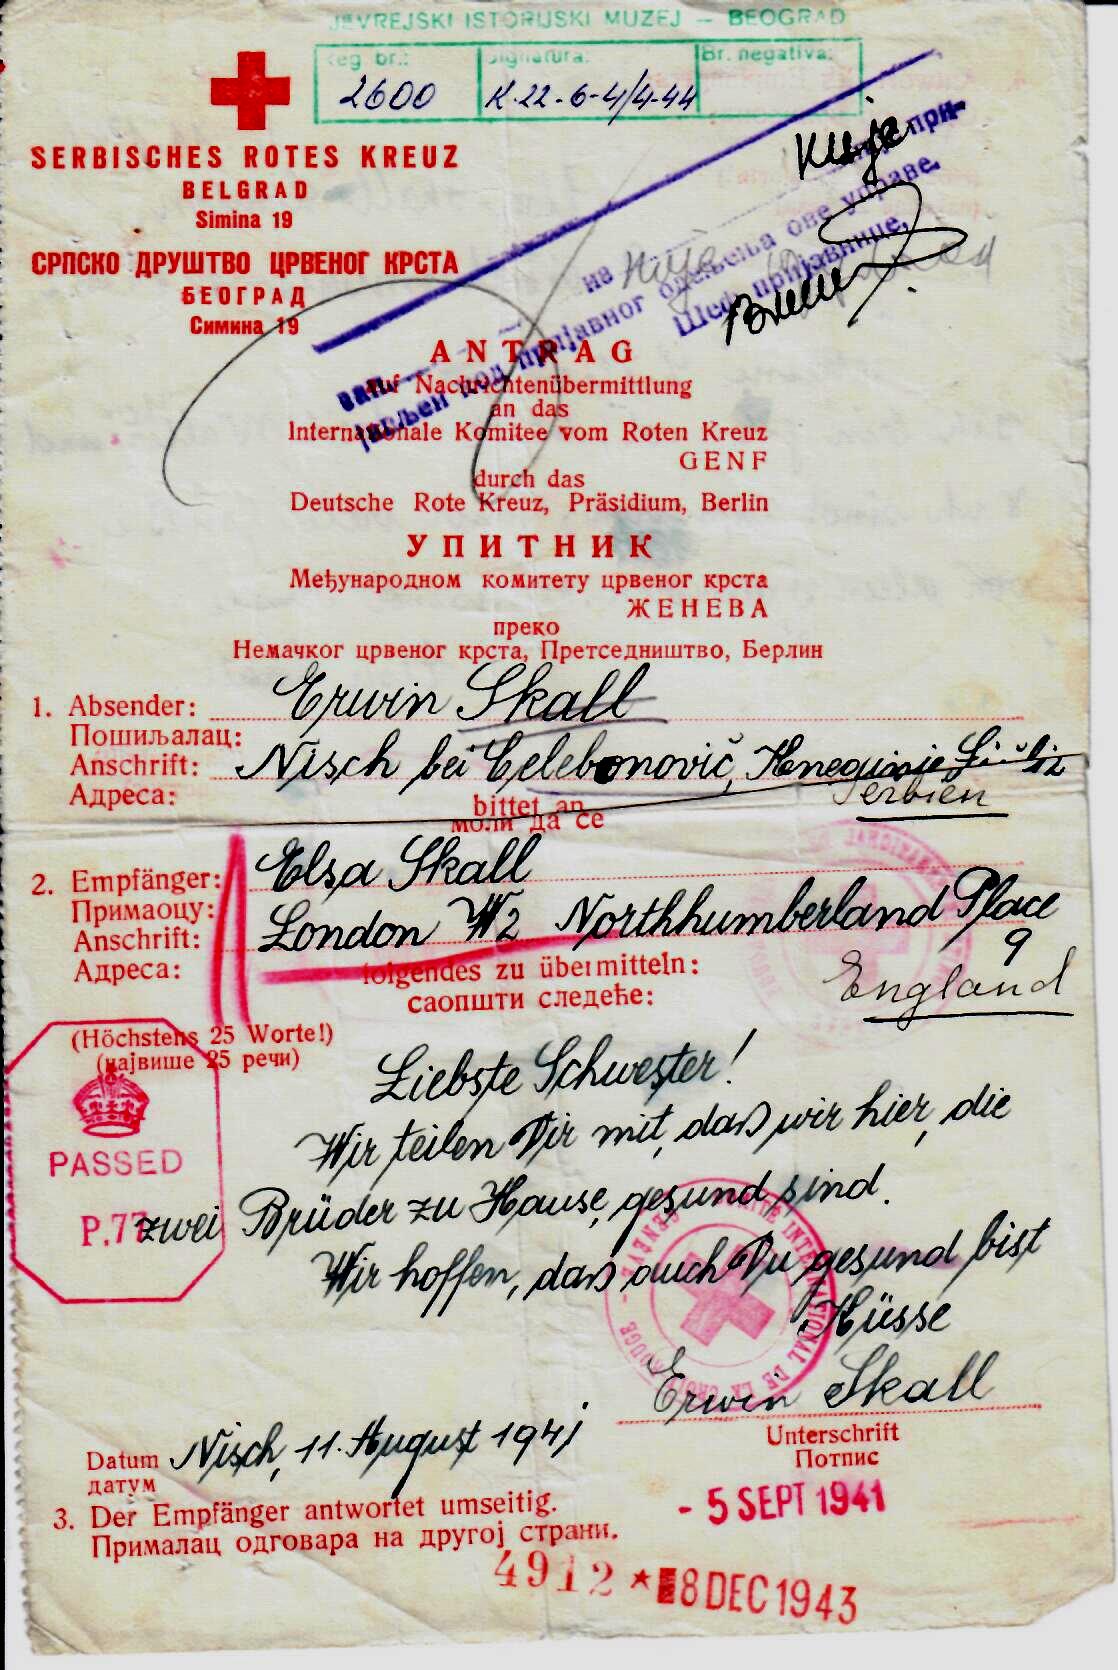 JEVREJSKI ISTORIJSKI MUZEJ – BEOGRAD
Reg br.: Signatura: Br. negativa:
2600 K.22-6-4/4-44
SERBISCHES ROTES KREUZ
BELGRAD
Simina 19
СРПСКО ДРУШТВО ЦРВЕНОГ КРСТА
БЕОГРАД
Симина 19
није
не
није
јављен код пријавног одељења ове управе.
Шеф пријавнице,
ANTRAG
auf Nachrichtenübermittlung
an das
Internationale Komitee vom Roten Kreuz
GENF
durch das
Deutsche Rote Kreuz, Präsidium, Berlin
УПИТНИК
Међународном комитету црвеног крста
ЖЕНЕВА
преко
Немачког црвеног крста, Претседништво, Берлин
1. Absender: Erwin Skall
Пошиљалац:
Anschrift: Nisch bei Celebonovič,
Адреса: Serbien
bittet an
моли да се
2. Empfänger: Elsa Skall
Примаоцу:
Anschrift: London W2 Northhumberland Place
Адреса: 9
England
folgendes zu übermitteln:
саопшти следеће:
(Höchstens 25 Worte!)
(највише 25 речи)
PASSED
P.77
Liebste Schwester!
Wir teilen Dir mit, daß wir hier, die
zwei Brüder zu Hause, gesund sind.
Wir hoffen, daß auch Du gesund bist
Küsse
Erwin Skall
COMITÉ INTERNATIONAL DE LA CROIX ROUGE – GENÈVE
Unterschrift
Потпис
Datum Nisch, 11. August 1941
датум
3. Der Empfänger antwortet umseitig.
Прималац одговара на другој страни.
- 5 SEPT 1941
4912 * 8 DEC 1943